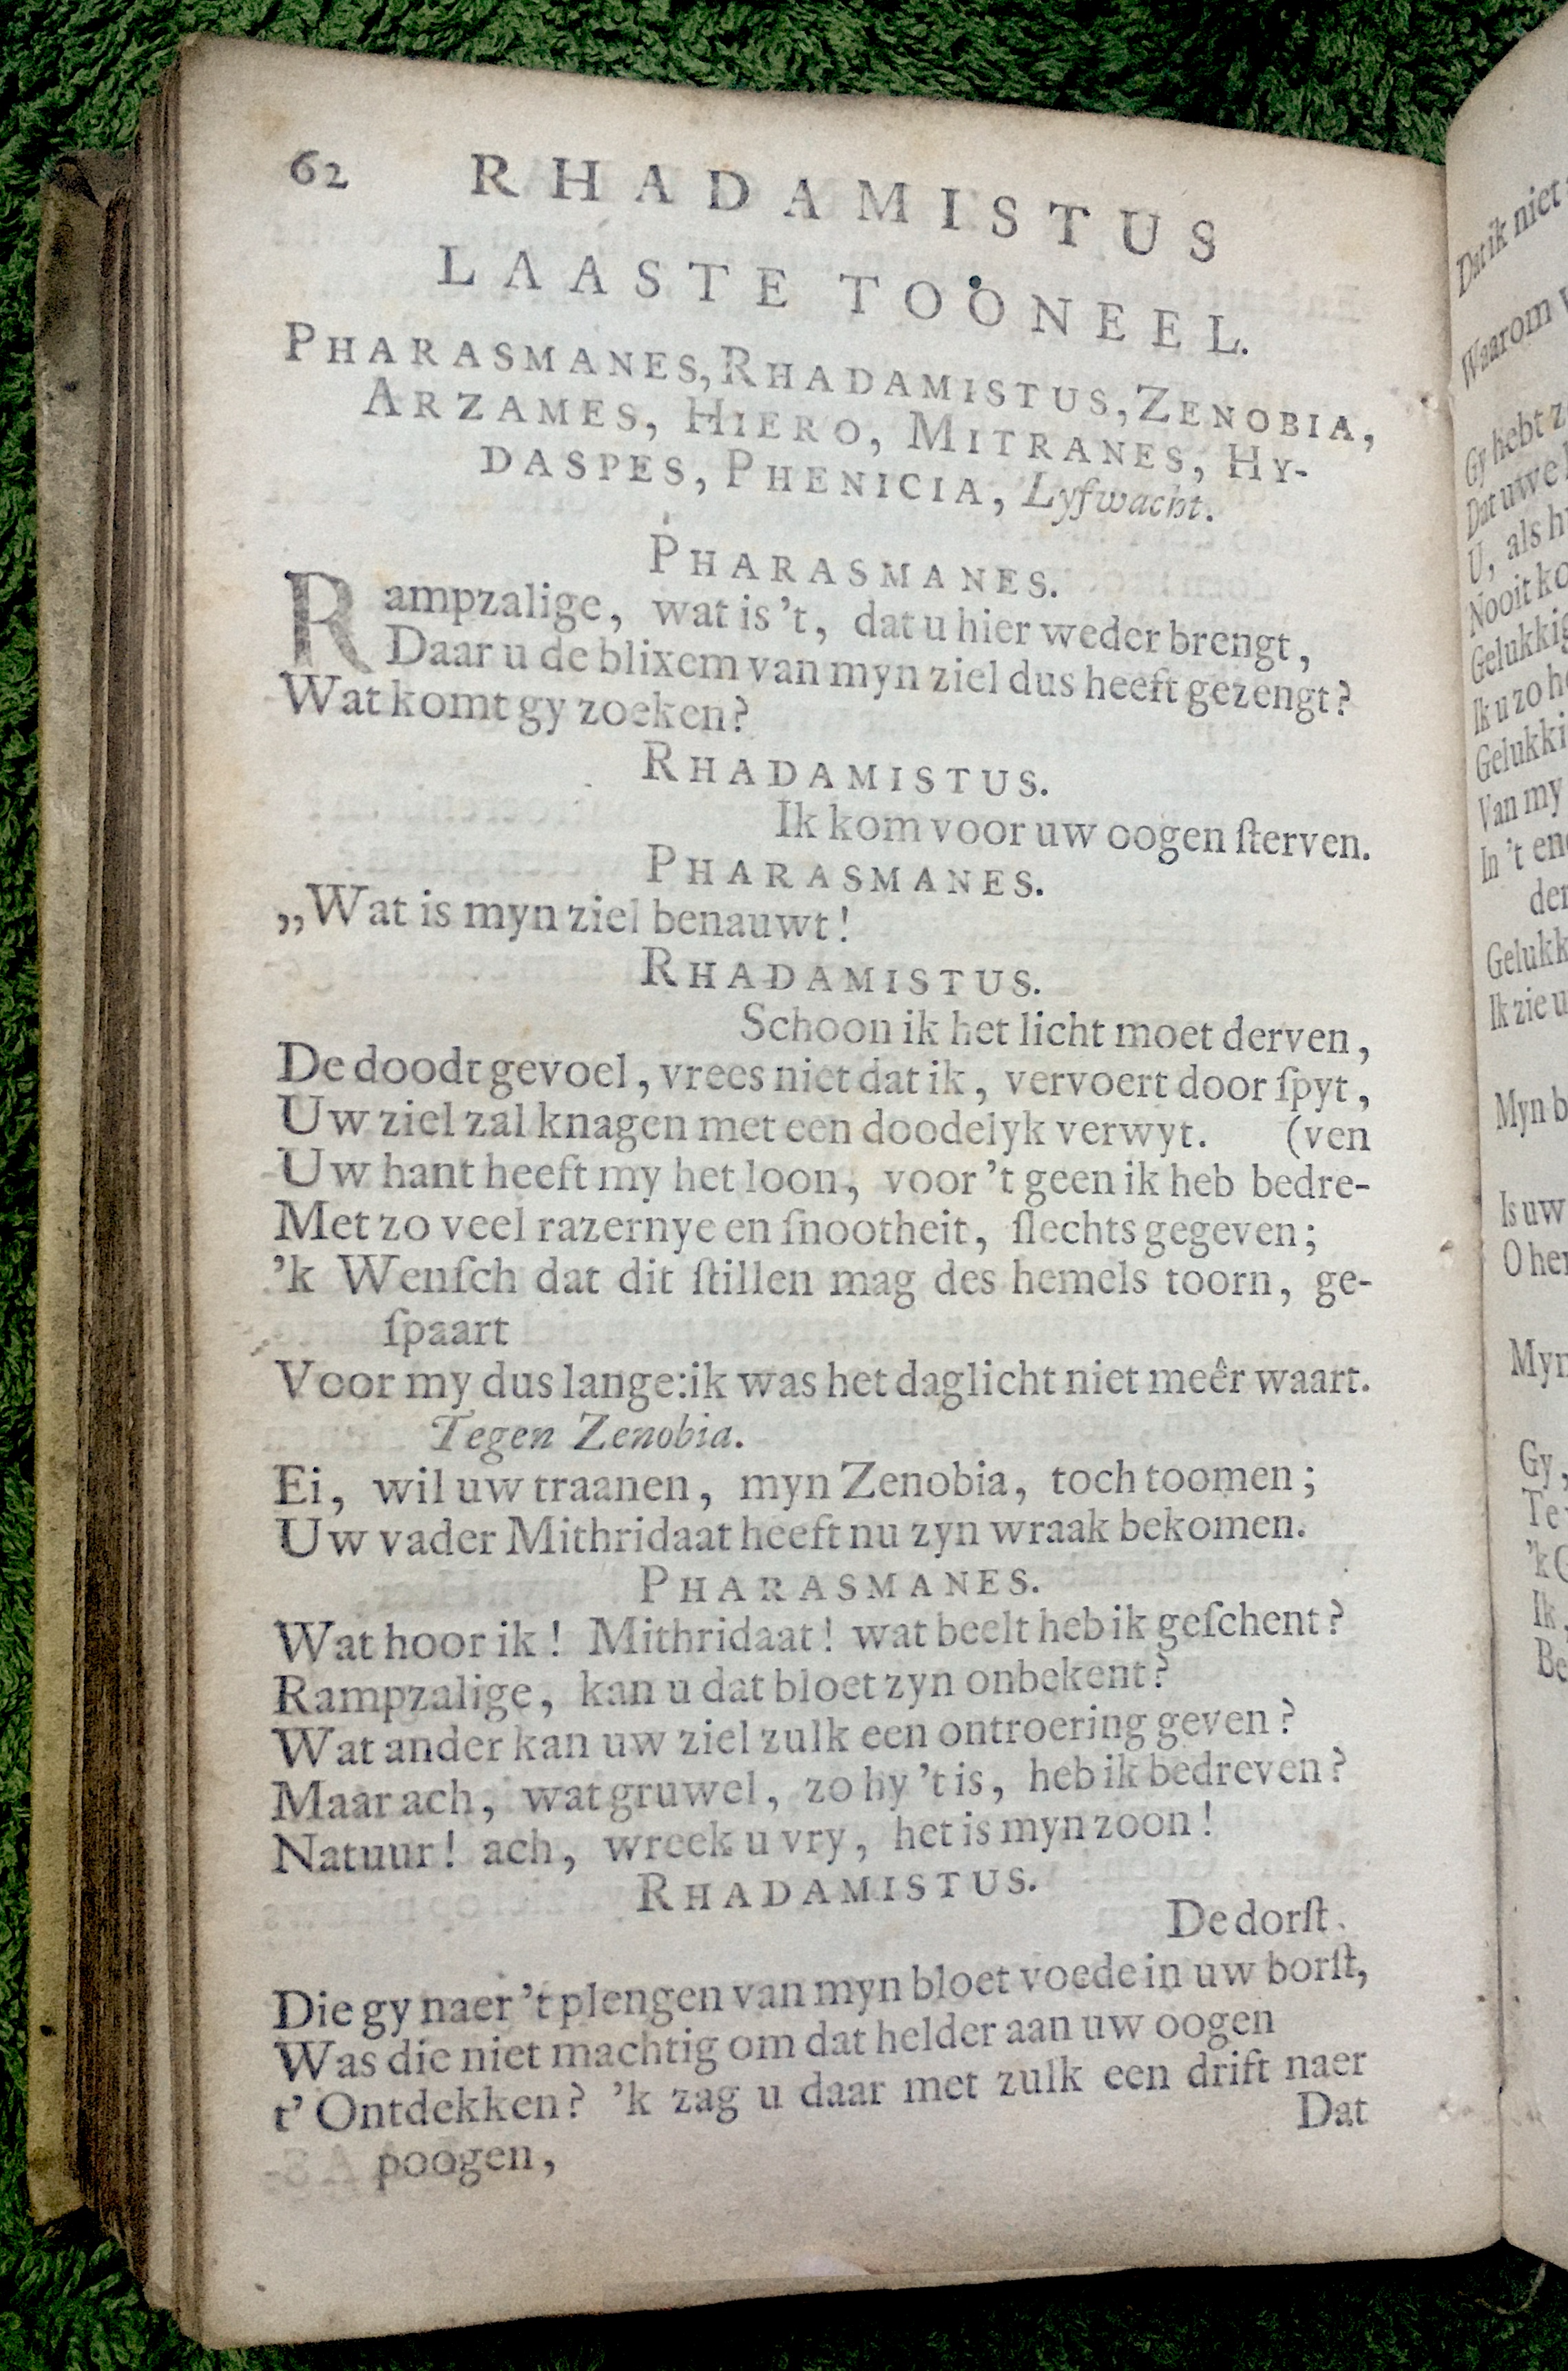 62 RHADAMISTUS
LAASTE TOONEEL.
PHARASMANES, RHADAMISTUS, ZENOBIA,
ARZAMES, HIERO, MITRANES, HY-
DASPES, PHENICIA, Lyfwacht.
PHARASMANES.
Rampzalige, wat is 't, dat u hier weder brengt,
Daar u de blixem van myn ziel dus heeft gezengt?
Wat komt gy zoeken?
RHADAMISTUS.
Ik kom voor uw oogen ſterven.
PHARASMANES.
„Wat is myn ziel benauwt!
RHADAMISTUS.
Schoon ik het licht moet derven,
De doodt gevoel, vrees niet dat ik, vervoert door ſpyt,
Uw ziel zal knagen met een doodelyk verwyt. (ven
Uw hant heeft my het loon, voor 't geen ik heb bedre-
Met zo veel razernye en ſnootheit, ſlechts gegeven;
'k Wenſch dat dit ſtillen mag des hemels toorn, ge-
ſpaart
Voor my dus lange: ik was het daglicht niet meêr waart.
Tegen Zenobia.
Ei, wil uw traanen, myn Zenobia, toch toomen;
Uw vader Mithridaat heeft nu zyn wraak bekomen.
PHARASMANES.
Wat hoor ik! Mithridaat! wat beelt heb ik geſchent?
Rampzalige, kan u dat bloet zyn onbekent?
Wat ander kan uw ziel zulk een ontroering geven?
Maar ach, wat gruwel, zo hy 't is, heb ik bedreven?
Natuur! ach, wreek u vry, het is myn zoon!
RHADAMISTUS.
De dorſt
Die gy naer 't plengen van myn bloet voede in uw borſt,
Was die niet machtig om dat helder aan uw oogen
t' Ontdekken? 'k zag u daar met zulk een drift naer
poogen,
Dat
Dat ik niet
Waarom
Gy hebt
Dat uwe
U, als
Nooit
Ik u zo
Van my
In 't
Ik zie u
Myn
Is uw
O
Gy,
Te
'k
Ik